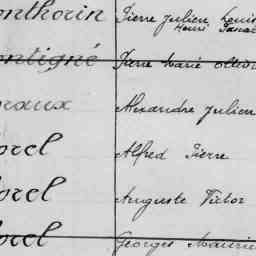 onthorin Pierre Julien Louis
Henri
ontigné Pierre Marie
oraux Alexandre Julien
orel Alfred Pierre
orel Auguste Victor
orel Georges Mauri